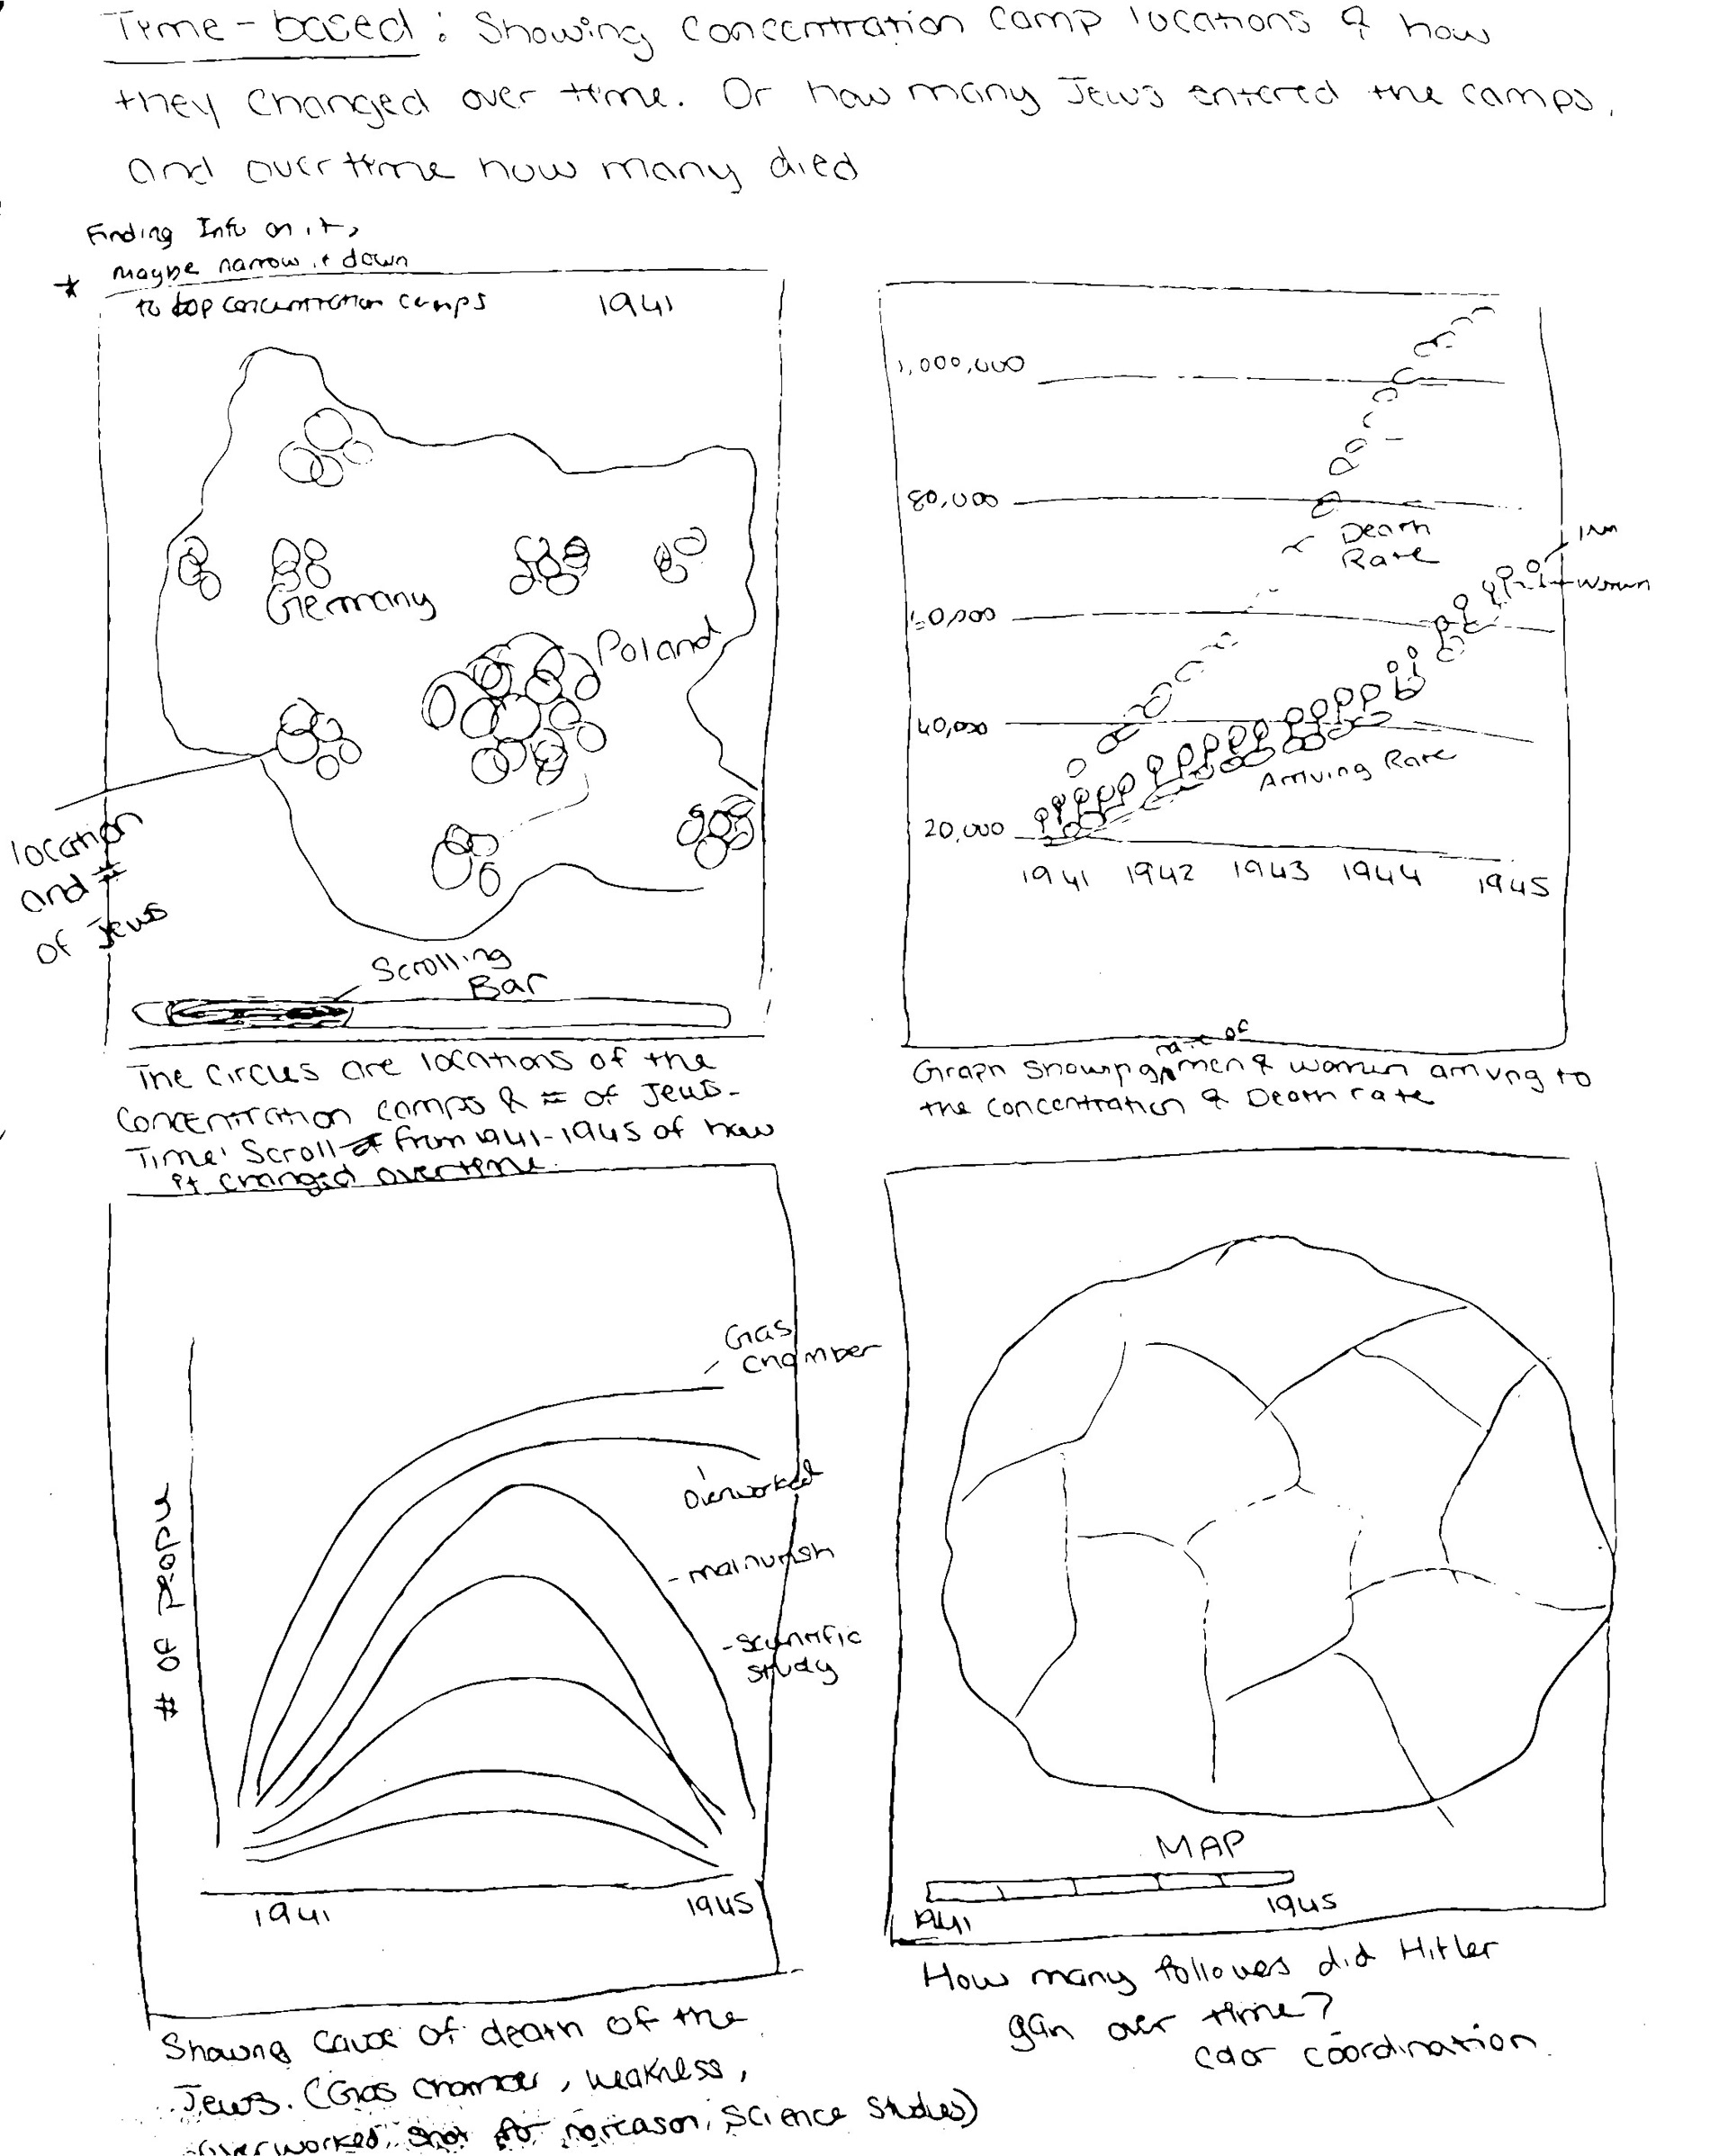 Time-based: Showing concentration camp locations & how
they changed over time. Or how many Jews entered the camps.
and over time how many died
Finding Info on it,
maybe narrow it down
* to top concentration camps
1941
Germany
Poland
location
and #
of Jews
Scrolling
Bar
The circles are locations of the
concentration camps & # of Jews.
Time: Scroll from 1941-1945 of how
it changed overtime.
1,000,000
80,000
Death
Rate
women
60,000
40,000
Arriving Rate
20,000
1941 1942 1943 1944 1945
rate of
Graph showing men & women arriving to
the concentration & Death rate
Gas
chamber
overworked
- malnurish
- scientific
study
# OF PEOPLE
1941 1945
Showing cause of death of the
Jews. (Gas chamber, weakness,
overworked, shot for no reason, science studies)
MAP
1941 1945
How many follower did Hitler
gain over time?
color coordination.